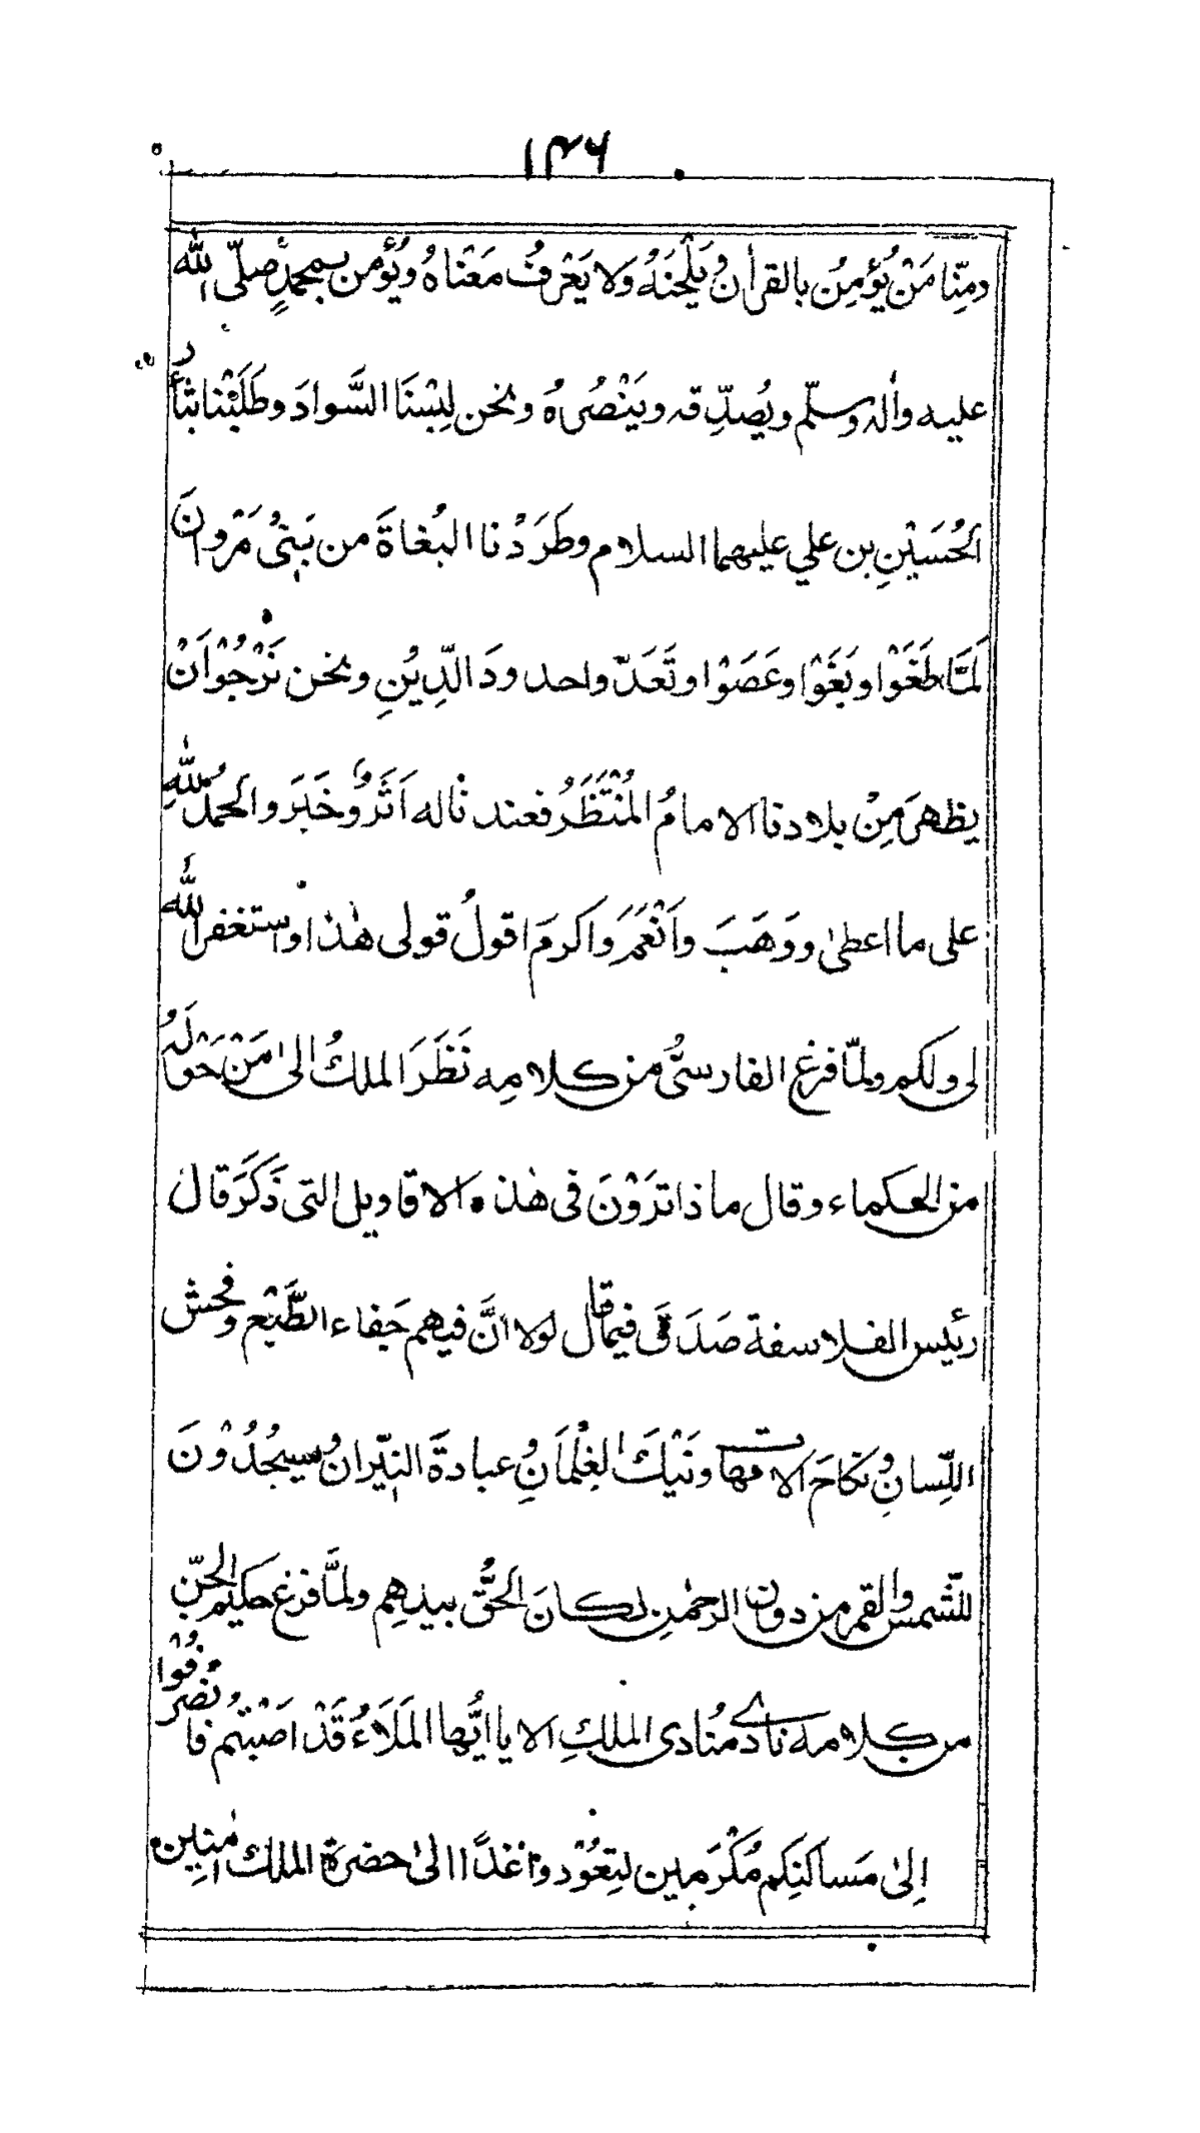 ۱۴۶
ومِنّا مَنْ يُؤمِنُ بالقرأن ويَلْحَنُهُ ولا يَعْرفُ مَعْناهُ ويُؤمن بمحمدٍ صلّى الله
عليه واٰله وسلّم ويُصدِّقه ويَنْصُرهُ ونحن لبِسْنَا السَّوادَ وطَلَبْنا بثأر
الحُسَيْنِ بن علي عليهما السلام وطَرَدْنا البُغاةَ من بَنِيْ مَرْوانَ
لَمَّا طَغَوْا وبَغَوْا وعَصَوْا وتَعَدّوا حدودَ الدِّيْنِ ونحن نَرْجُوْ اَنْ
يظهرَ مِنْ بلادنا الامامُ المُنْتَظَرُ فعندنا له اَثَرٌ وخَبَرٌ والحمدُ للهِ
على ما اعطىٰ ووَهَبَ واَنْعَمَ واكرمَ اقولُ قولى هٰذا واستغفر الله
لى ولكم ولمّا فرغ الفارسىُّ من كلامِه نَظَرَ الملكُ الىٰ مَنْ حَوْلَهُ
من الحكماء وقال ماذا تَرَوْنَ فى هٰذه الاقاويل التى ذَكَرَ قال
رئيس الفلاسفة صَدَقَ فيما قال لولا انَّ فيهم جَفاء الطَّبْعِ وفحش
اللّسانِ ونكاحَ الامّهات ونَيْكَ الغِلْمَانِ وعبادةَ النّيران يسجُدُوْنَ
للشّمس والقمر من دون الرحمٰنِ لكانَ الحَقُّ بيدِهِم ولمّا فرغ حكيم الجنّ
من كلامه نادى مُنادى الملكِ الا يا ايُّها المَلَاءُ قَدْ اَمْسَيْتم فانْصَرِفُوْا
اِلىٰ مَساكنِكم مُكْرَمين لتِعُوْدوا غَدًا الىٰ حضرة الملك اٰمنِين